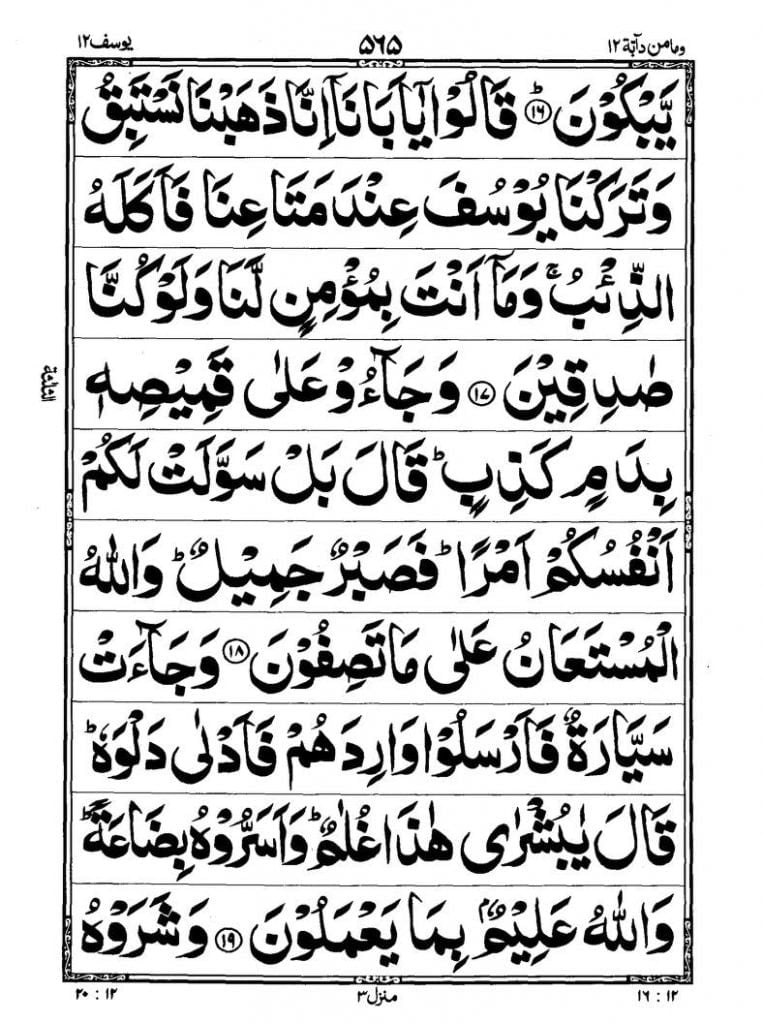 وما من دآبة ١٢ ۵۶۵ یوسف ١٢
يَّبْكُوْنَ ؕ﴿۱۶﴾ قَالُوْا يٰۤاَبَانَاۤ اِنَّا ذَهَبْنَا نَسْتَبِقُ
وَتَرَكْنَا يُوْسُفَ عِنْدَ مَتَاعِنَا فَاَكَلَهُ
الذِّئْبُ ۚ وَمَاۤ اَنْتَ بِمُؤْمِنٍ لَّنَا وَلَوْ كُنَّا
صٰدِقِيْنَ ﴿۱۷﴾ وَجَآءُوْ عَلٰى قَمِيْصِهٖ
الثلثة
بِدَمٍ كَذِبٍ ؕ قَالَ بَلْ سَوَّلَتْ لَكُمْ
اَنْفُسُكُمْ اَمْرًا ؕ فَصَبْرٌ جَمِيْلٌ ؕ وَاللّٰهُ
الْمُسْتَعَانُ عَلٰى مَا تَصِفُوْنَ ﴿۱۸﴾ وَجَآءَتْ
سَيَّارَةٌ فَاَرْسَلُوْا وَارِدَهُمْ فَاَدْلٰى دَلْوَهٗ ؕ
قَالَ يٰبُشْرٰى هٰذَا غُلٰمٌ ؕ وَاَسَرُّوْهُ بِضَاعَةً ؕ
وَاللّٰهُ عَلِيْمٌۢ بِمَا يَعْمَلُوْنَ ﴿۱۹﴾ وَشَرَوْهُ
١٢ : ١٦ منزل ٣ ١٢ : ٢٠